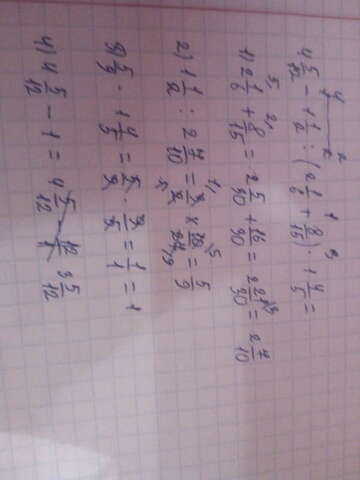 4 5/12 - 1 1/2 : (2 1/6 + 8/15) · 1 4/5 =
4 2 1 3
1) 2 1/6 + 8/15 = 2 5/30 + 16/30 = 2 21/30 = 2 7/10
2) 1 1/2 : 2 7/10 = 3/2 × 10/27 = 5/9
3) 5/9 · 1 4/5 = 5/9 · 9/5 = 1/1 = 1
4) 4 5/12 - 1 = 4 5/12 3 5/12